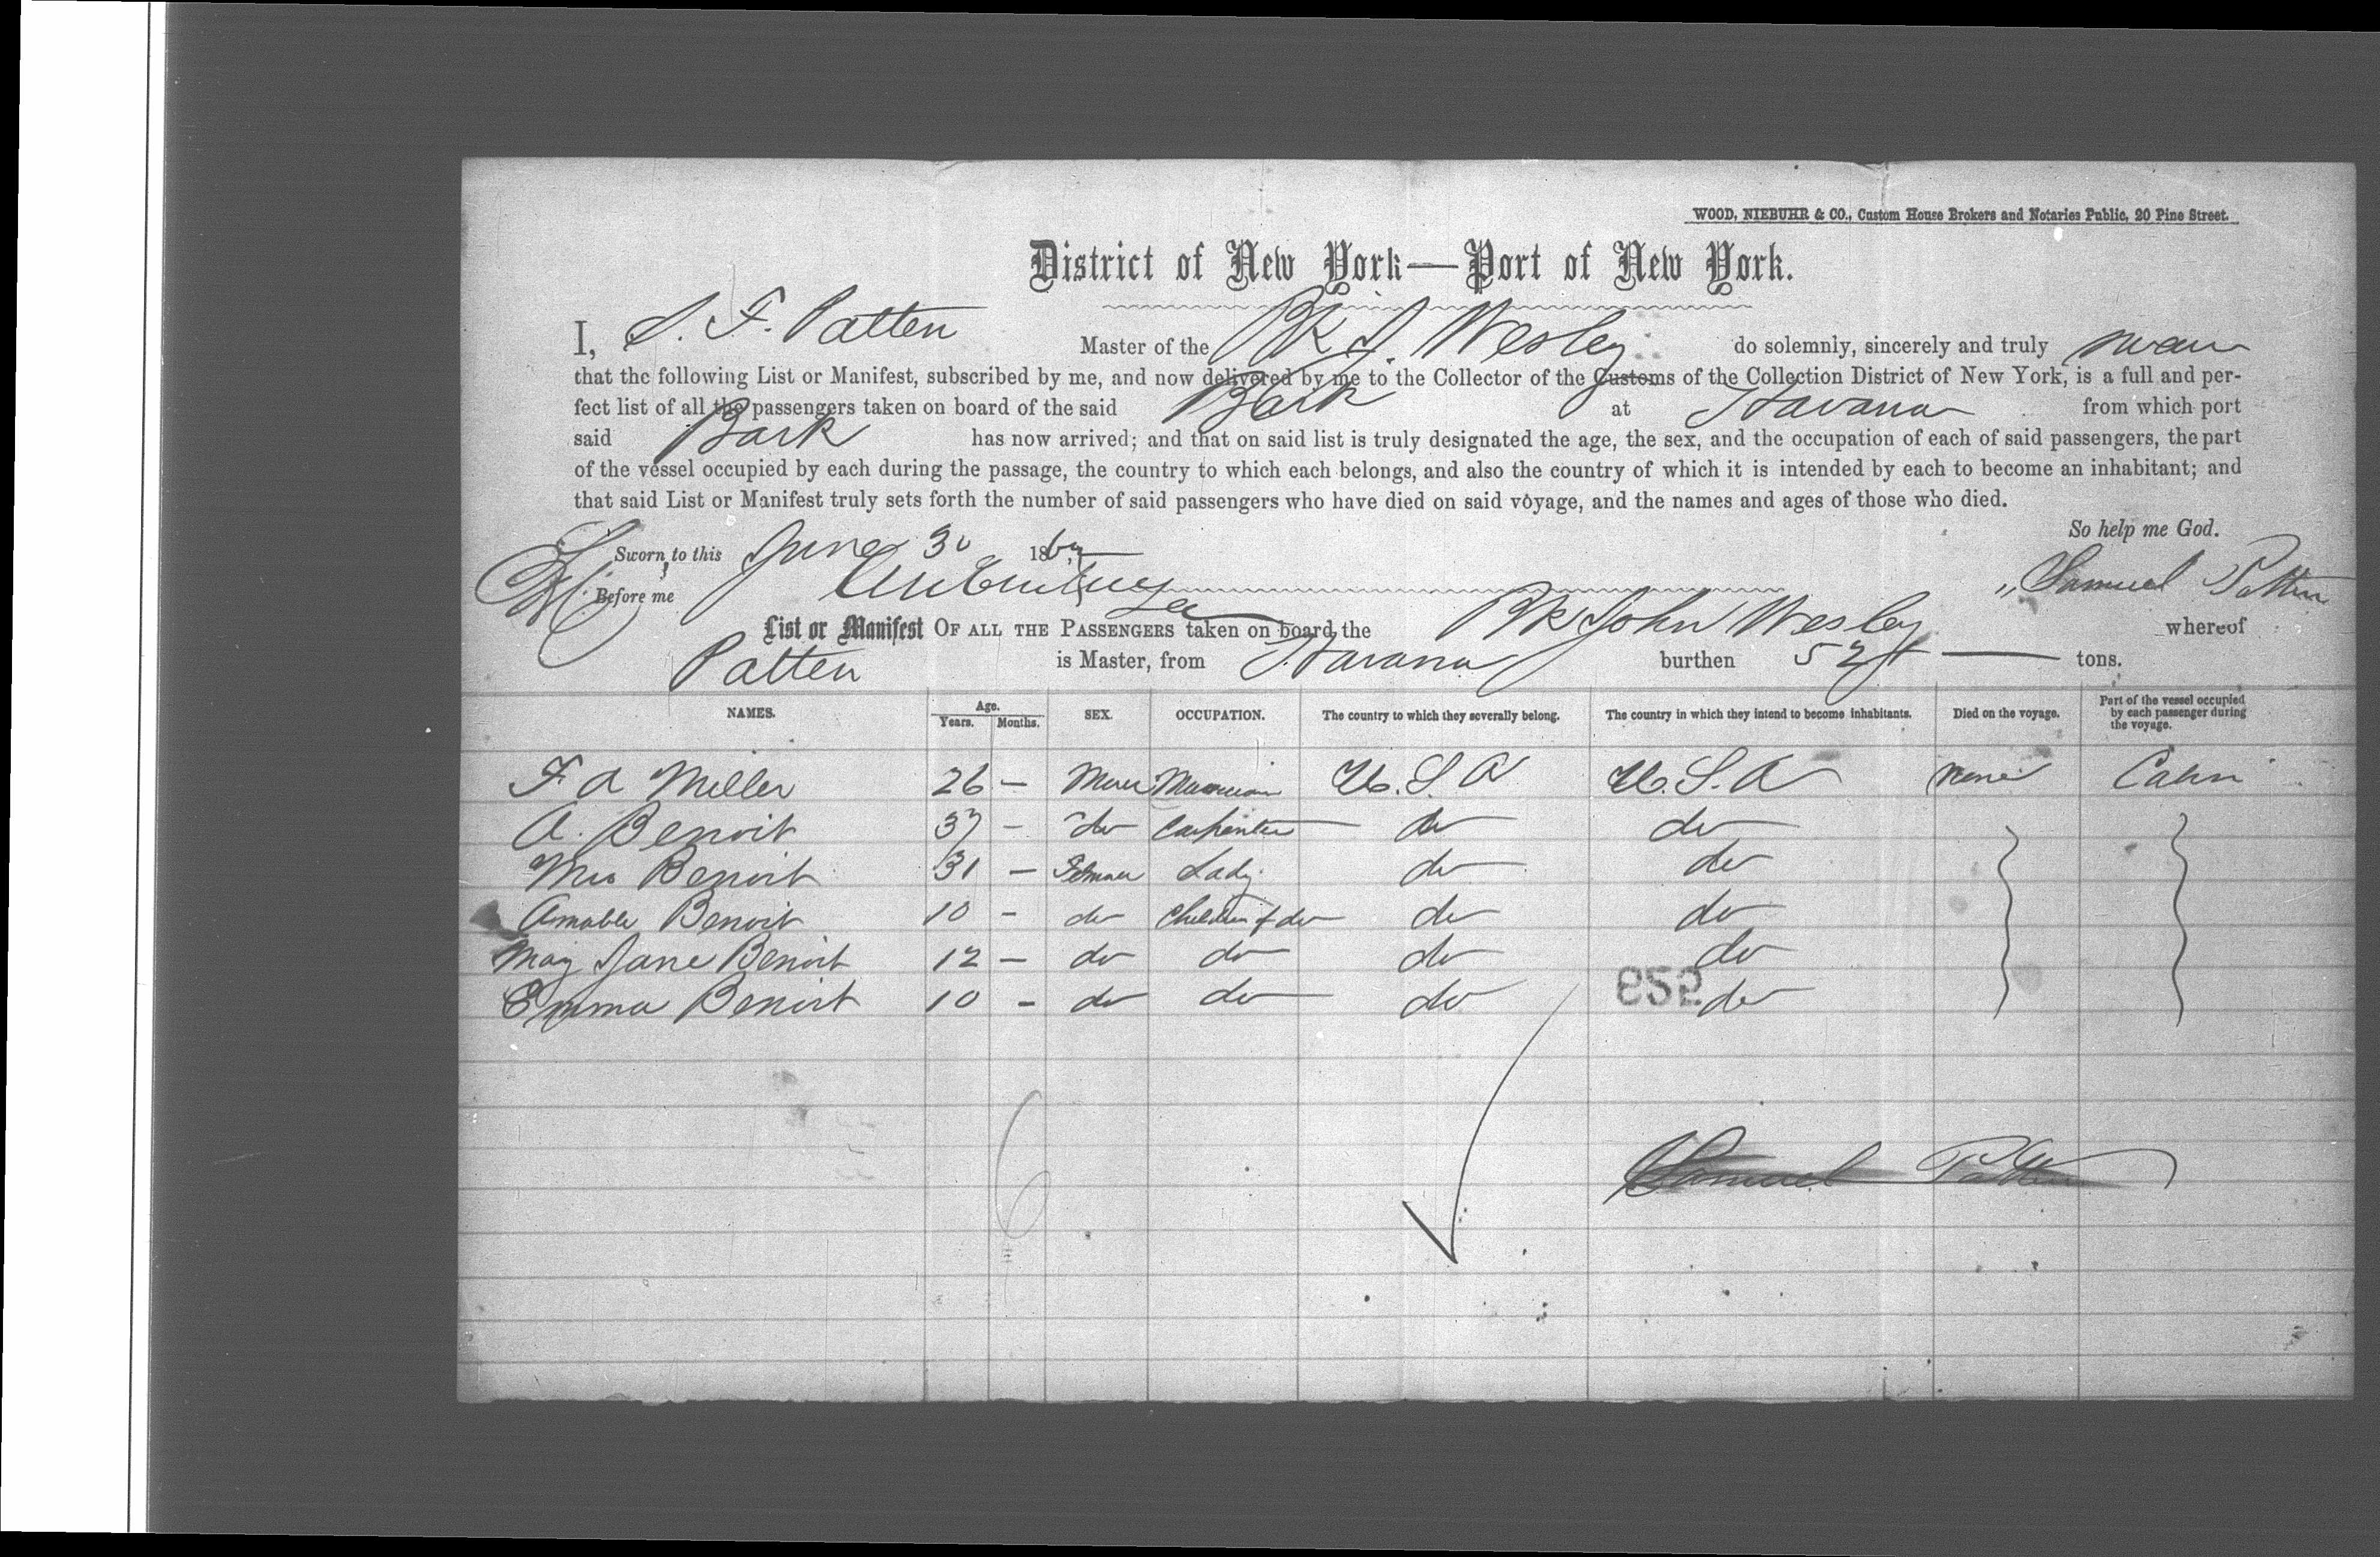 WOOD, NIEBUHR & CO., Custom House Brokers and Notaries Public, 20 Pine Street.
District of New York—Port of New York.
I, S. F. Patten Master of the Bk J. Wesley do solemnly, sincerely and truly swear
that the following List or Manifest, subscribed by me, and now delivered by me to the Collector of the Customs of the Collection District of New York, is a full and per-
fect list of all the passengers taken on board of the said Bark at Havana from which port
said Bark has now arrived; and that on said list is truly designated the age, the sex, and the occupation of each of said passengers, the part
of the vessel occupied by each during the passage, the country to which each belongs, and also the country of which it is intended by each to become an inhabitant; and
that said List or Manifest truly sets forth the number of said passengers who have died on said voyage, and the names and ages of those who died.
So help me God.
Sworn to this June 30 186
Before me Samuel Patten
List or Manifest OF ALL THE PASSENGERS taken on board the Bk John Wesley whereof
Patten is Master, from Havana burthen tons.
NAMES. Age. Years. Months. SEX. OCCUPATION. The country to which they severally belong. The country in which they intend to become inhabitants. Died on the voyage. Part of the vessel occupied by each passenger during the voyage.
F A Miller 26 — U.S.A U.S.A none Cabin
A. Benoit 37 — do Carpenter do do
Mrs Benoit 31 — Female Lady do do
Amable Benoit 10 — do Children of do do do
May Jane Benoit 12 — do do do do
Emma Benoit 10 — do do do do
952
6
Samuel Patten